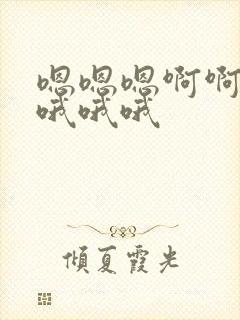 嗯嗯嗯啊啊
哦哦哦
倾夏霞光